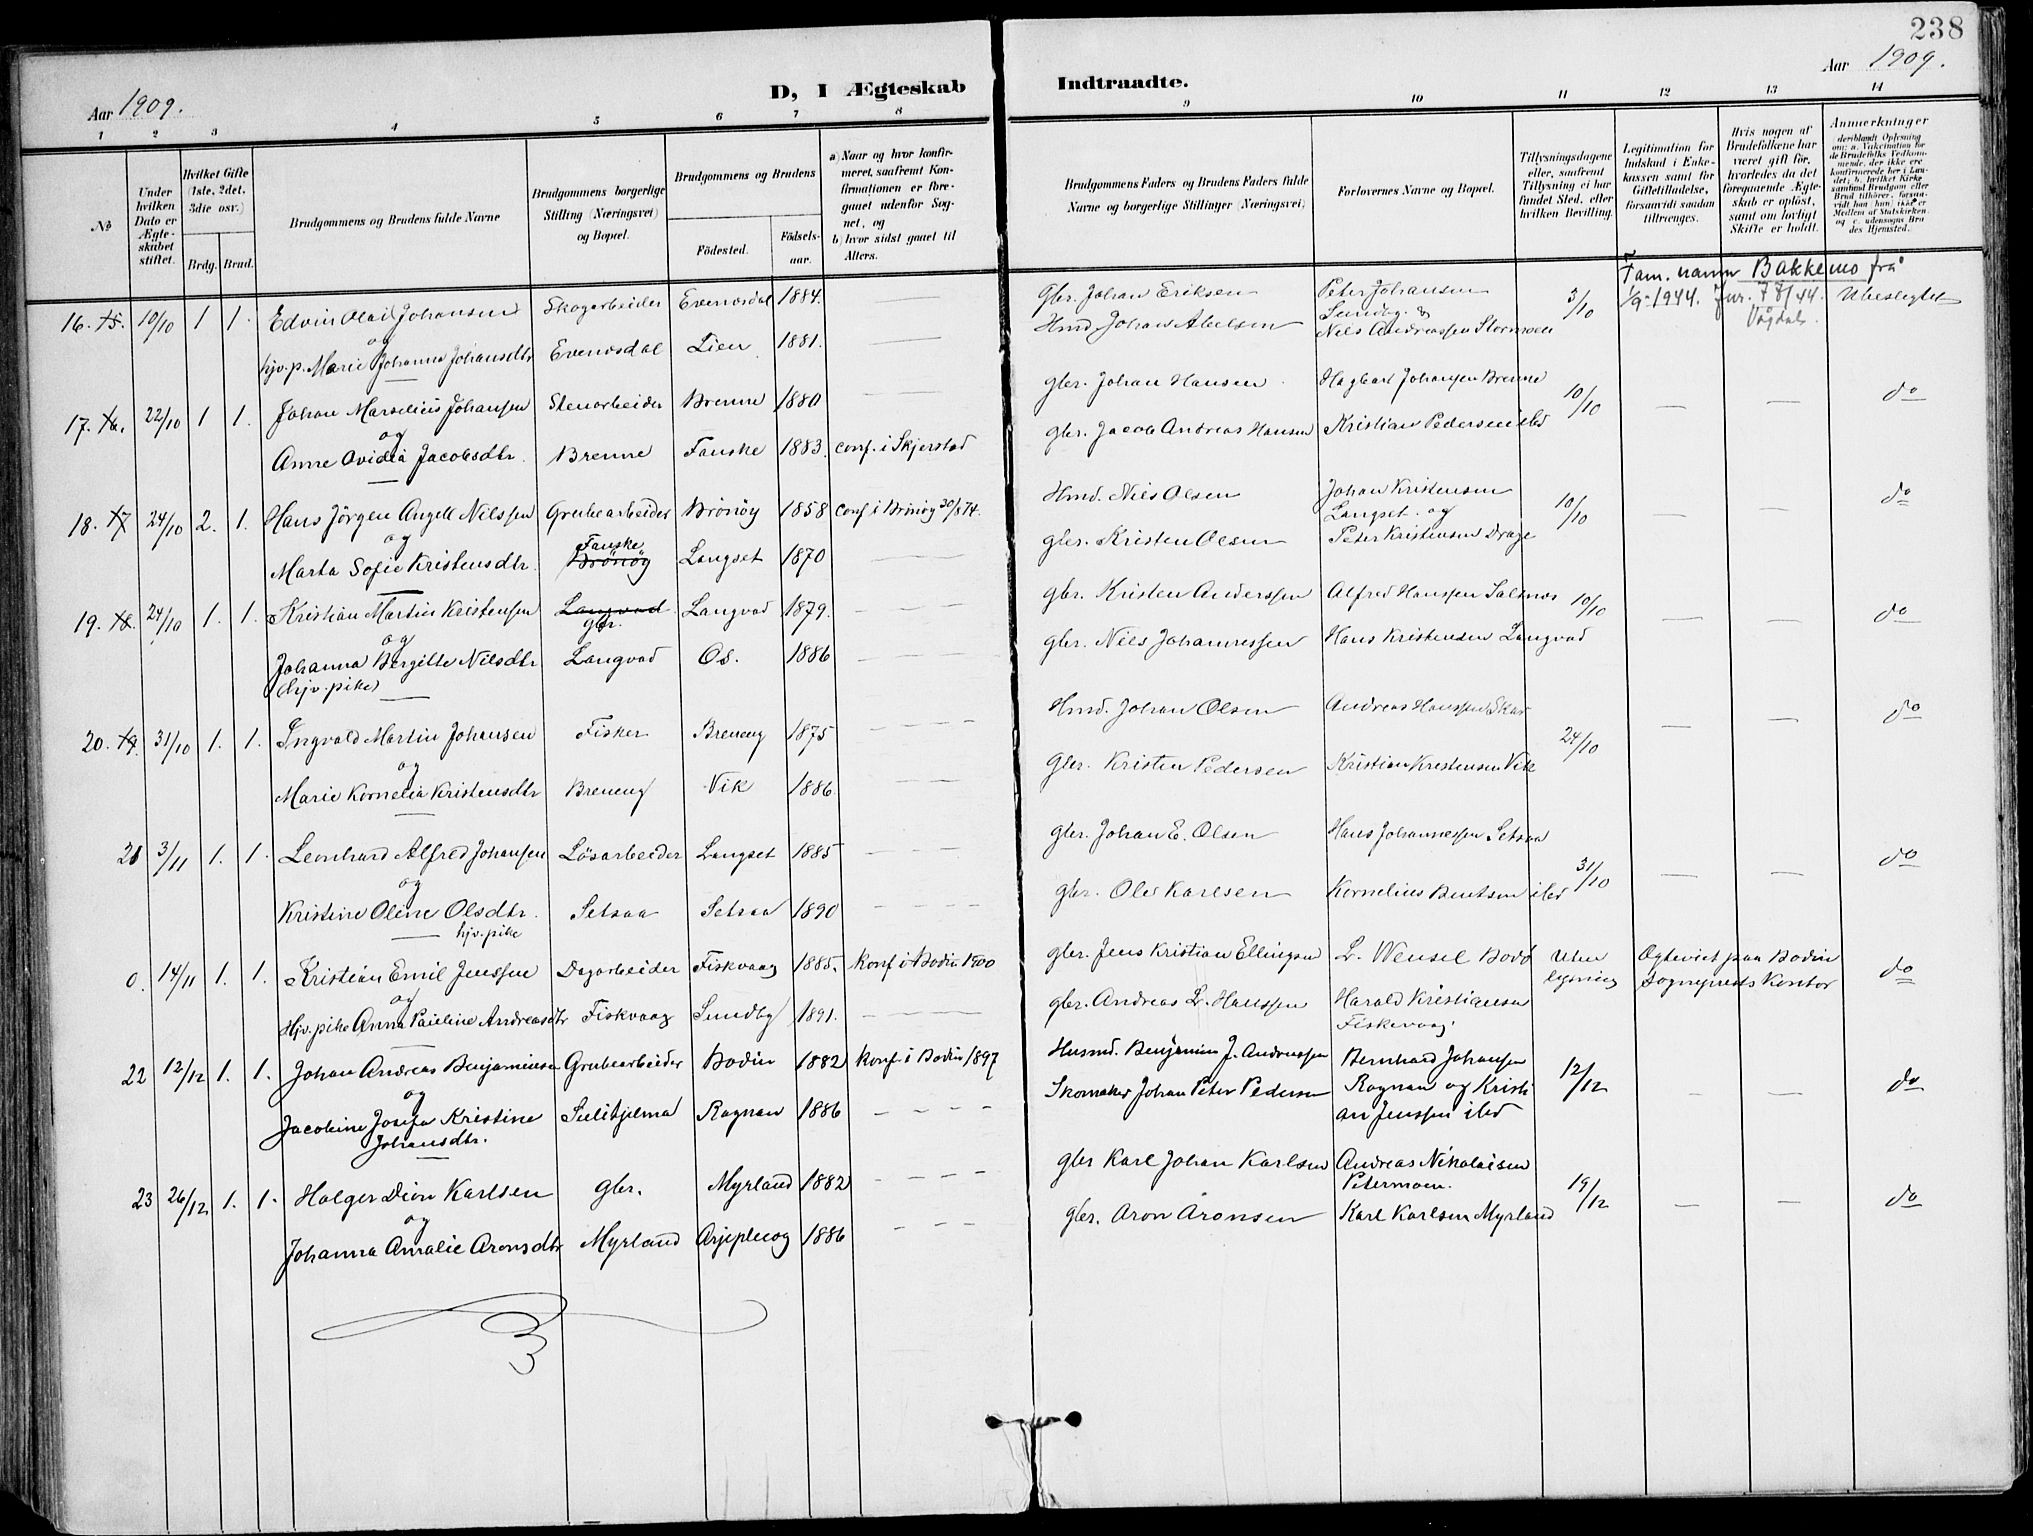 238
Aar 1909.
D, I Ægteskab Indtraadte.
Aar 1909.
1 2 3 4 5 6 7 8 9 10 11 12 13 14
No
Under hvilken Dato er Ægteskabet stiftet.
Hvilket Gifte (1ste, 2det, 3die osv.)
Brdg. Brud.
Brudgommens og Brudens fulde Navne
Brudgommens borgerlige Stilling (Næringsvei) og Bopæl.
Brudgommens og Brudens
Födested.
Födselsaar.
a) Naar og hvor konfirmeret, saafremt Konfirmationen er foregaaet udenfor Sognet, og
b) hvor sidst gaaet til Alters.
Brudgommens Faders og Brudens Faders fulde Navne og borgerlige Stillinger (Næringsvei)
Forlovernes Navne og Bopæl.
Tillysningsdagene eller, saafremt Tillysning ei har fundet Sted, efter hvilken Bevilling.
Legitimation for Indskud i Enkekassen samt for Giftetilladelse, forsaavidt saadan tiltrænges.
Hvis nogen af Brudefolkene har været gift før, hvorledes da det foregaaende Ægteskab er oplöst, samt om lovligt Skifte er holdt.
Anmerkninger
deriblandt Oplysning om: a. Vakcination for de Brudefolks Vedkommende, der ikke ere konfirmerede her i Landet; b. hvilket Kirkesamfund Brudgom eller Brud tilhører, forsaavidt han (hun) ikke er Medlem af Statskirken, og c. udensogns Brudes Hjemsted.
Fam. namn Bakkemo frå
1/9-1944. Jnr. 78/44.
16. 15. 10/10 1 1. Edvin Olai Johansen Skogarbeider Evenesdal 1884. Gbr. Johan Eriksen Peter Johansen 3/10 Ubeslegtet
og Sundby &
hjv.p. Marie Johanna Johansdtr Evenesdal Lien 1881. Hmd Johan Abelsen Nils Andreassen Stormoen
17. 16. 22/10 1 1. Johan Marselius Johansen Stenarbeider Brenne 1880 gbr. Johan Hansen Hagbart Johansen Brenne 10/10 — — do
og
Anne Ovidia Jacobsdtr. Brenne Fauske 1883. conf. i Skjerstad gbr. Jacob Andreas Hansen Kristian Pedersen ibd
18. 17 24/10 2. 1. Hans Jörgen Angell Nilssen Grubearbeider Brönöy 1858 Conf i Brönöy 30/8 74. Hmd. Nils Olsen Johan Kristensen 10/10 — — do
og Fauske Langset. og
Marta Sofie Kristensdtr. Brönöy Langset 1870 gbr. Kristen Olsen Peter Kristensen Drage
19. 18. 24/10 1. 1. Kristian Martin Kristensen Langvad Langvad 1879. gbr. Kristen Anderssen Alfred Hanssen Saltnes 10/10 — — do
og gbr.
Johanna Bergitte Nilsdtr Langvad Os. 1886 gbr. Nils Johannessen Hans Kristensen Langvad
(hjv. pike)
20. 19. 31/10 1. 1. Ingvald Martin Johansen Fisker Breneng 1875 Hmd. Johan Olsen Andreas Hanssen Skar 24/10 — — do
og
Marie Kornelia Kristensdtr Breneng Vik 1886 gbr. Kristen Pedersen Kristian Kristensen Vik
21 3/11 1. 1. Leonhard Alfred Johansen Lösarbeider Langset 1885 gbr. Johan E. Olsen Hans Johannessen Setsaa 31/10 — — do
og
Kristine Oline Olsdtr. Setsaa Setsaa 1890 gbr. Ole Karlsen Kornelius Bentsen ibd
hjv. pike
0. 14/11 1. 1. Kristian Emil Jenssen Dagarbeider Fiskvaag 1885. Konf. i Bodin 1900 gbr. Jens Kristian Ellingsen L. Wensel Bodö Uten lysning Egteviet paa Bodin Sogneprests Kontor do
og
Hjv. pike Anna Pauline Andreasdtr Fiskvaag Sundby 1891. gbr. Andreas L. Hanssen Harald Kristiansen
Fiskevaag
22 12/12 1. 1. Johan Andreas Benjaminsen Grubearbeider Bodin 1882 Konf. i Bodin 1897 Husmd. Benjamin J. Andreassen Bernhard Johansen 12/12 — — do
og Rognan og Kristi
Jacobine Josefa Kristine Sulitjelma Rognan 1886 Skomaker Johan Peter Pedersen an Jenssen ibd
Johansdtr.
23 26/12 1. 1. Holger Dion Karlsen gbr. Myrland 1882 gbr Karl Johan Karlsen Andreas Nikolaisen 19/12 — — do
og Petermoen.
Johanna Amalie Aronsdtr Myrland Arjeploug 1886 gbr. Aron Aronsen Karl Karlsen Myrland